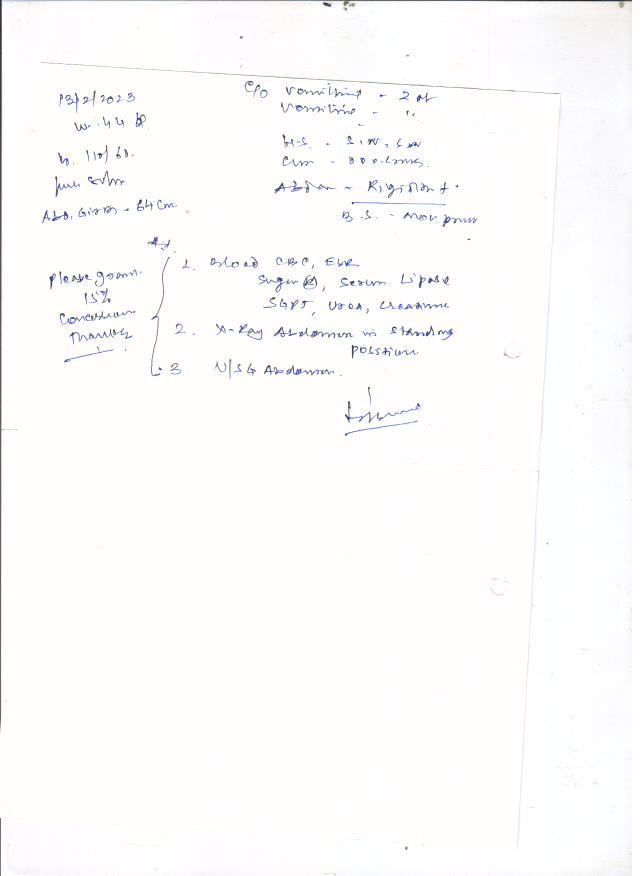 13/2/2023
W. 44
110/60.
Abd. Girth - 64 Cm.
C/O Vomiting - 2 d
Vomiting - "
H.S. -
Abdom - Rigidity + .
B.S. - Not
Please grant
15%
Concession
Thanks
1. Blood CBC, ESR
Sugar (R), Serum Lipase
SGPT, Urea, Creatinine
2. X-Ray Abdomen in Standing
Position
3 USG Abdomen.